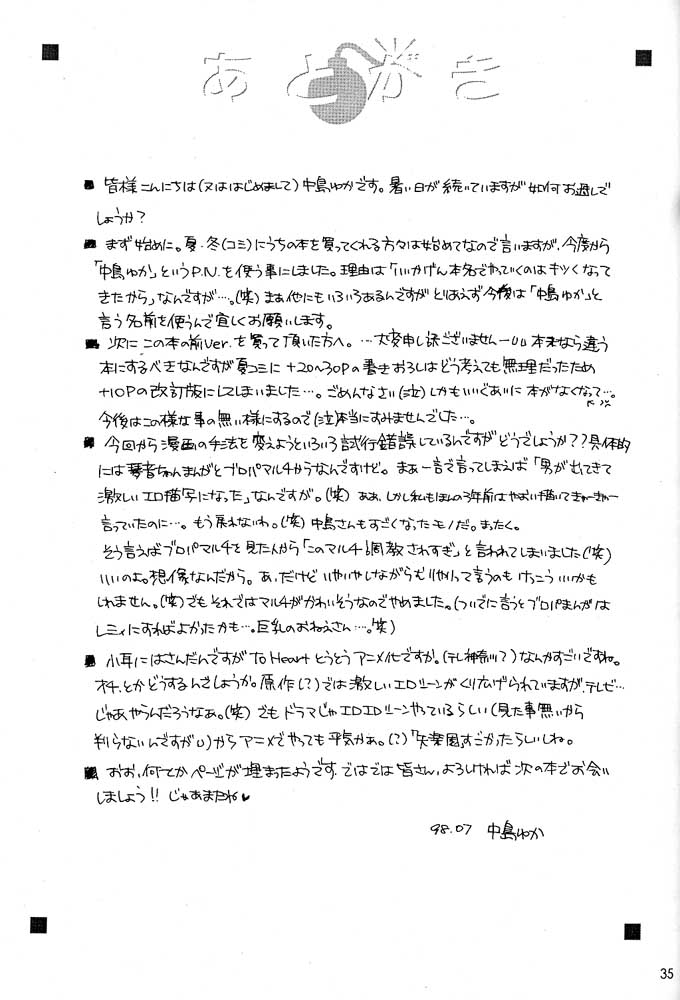 あとがき
■ 皆様こんにちは(又ははじめまして)中島ゆかです。暑い日が続いていますが如何お過しで
しょうか?
■ まず始めに。夏・冬(コミ)にうちの本を買ってくれる方々は始めてなので言いますが、今度から
「中島ゆか」というP.N.を使う事にしました。理由は「いいかげん本名でやっていくのはキツくなって
きたから」なんですが…。(笑)まぁ他にもいろいろあるんですがとりあえず今後は「中島ゆか」と
言う名前を使うんで宜しくお願いします。
■ 次にこの本の前Ver.を買って頂いた方へ。…大変申し訳ございませんー 本来なら違う
本にするべきなんですが夏コミに+20~30Pの書きおろしはどう考えても無理だったため
+10Pの改訂版にしてしまいました…。ごめんなさい(泣)しかもいいぐあいに本がなくなって…。
今後はこの様な事の無い様にするので(泣)本当にすみませんでした…。
■ 今回から漫画の手法を変えようといろいろ試行錯誤しているんですがどうでしょうか??具体的
には琴音ちゃんまんがとブロパマルチからなんですけど。まぁ一言で言ってしまえば「男が出てきて
激しいエロ描写になった」なんですが。(笑)ああ、しかし私もほんの3年前はやおい描いてきゃーきゃー
言っていたのに…。もう戻れないわ。(笑)中島さんもすごくなったモノだ。まったく。
そう言えばブロパマルチを見た人から「このマルチ調教されすぎ」と言われてしまいました(笑)
いいのよ。想像なんだから。あ、だけどいやいやしながらむりやりって言うのもけっこういいかも
しれません。(笑)でもそれではマルチがかわいそうなのでやめました。(ついでに言うとブロパまんがは
レミィにすればよかったかも…。巨乳のおねえさん…。笑)
■ 小耳にはさんだんですがTo Heartとうとうアニメ化ですか。(テレ神奈川?)なんかすごいですね。
オチとかどうするんでしょうか。原作(?)では激しいエロシーンがくり広げられていますが、テレビ…
じゃあやらんだろうなぁ。(笑)でもドラマじゃエロエロシーンやっているらしい(見た事無いから
判らないんですが)からアニメでやっても平気かぁ。(?)「失楽園すごかったらしいしね。
■ おお、何とかページが埋まったようです。ではでは皆さん、よろしければ次の本でお会い
しましょう!!じゃあまたね♥
98.07 中島ゆか
35